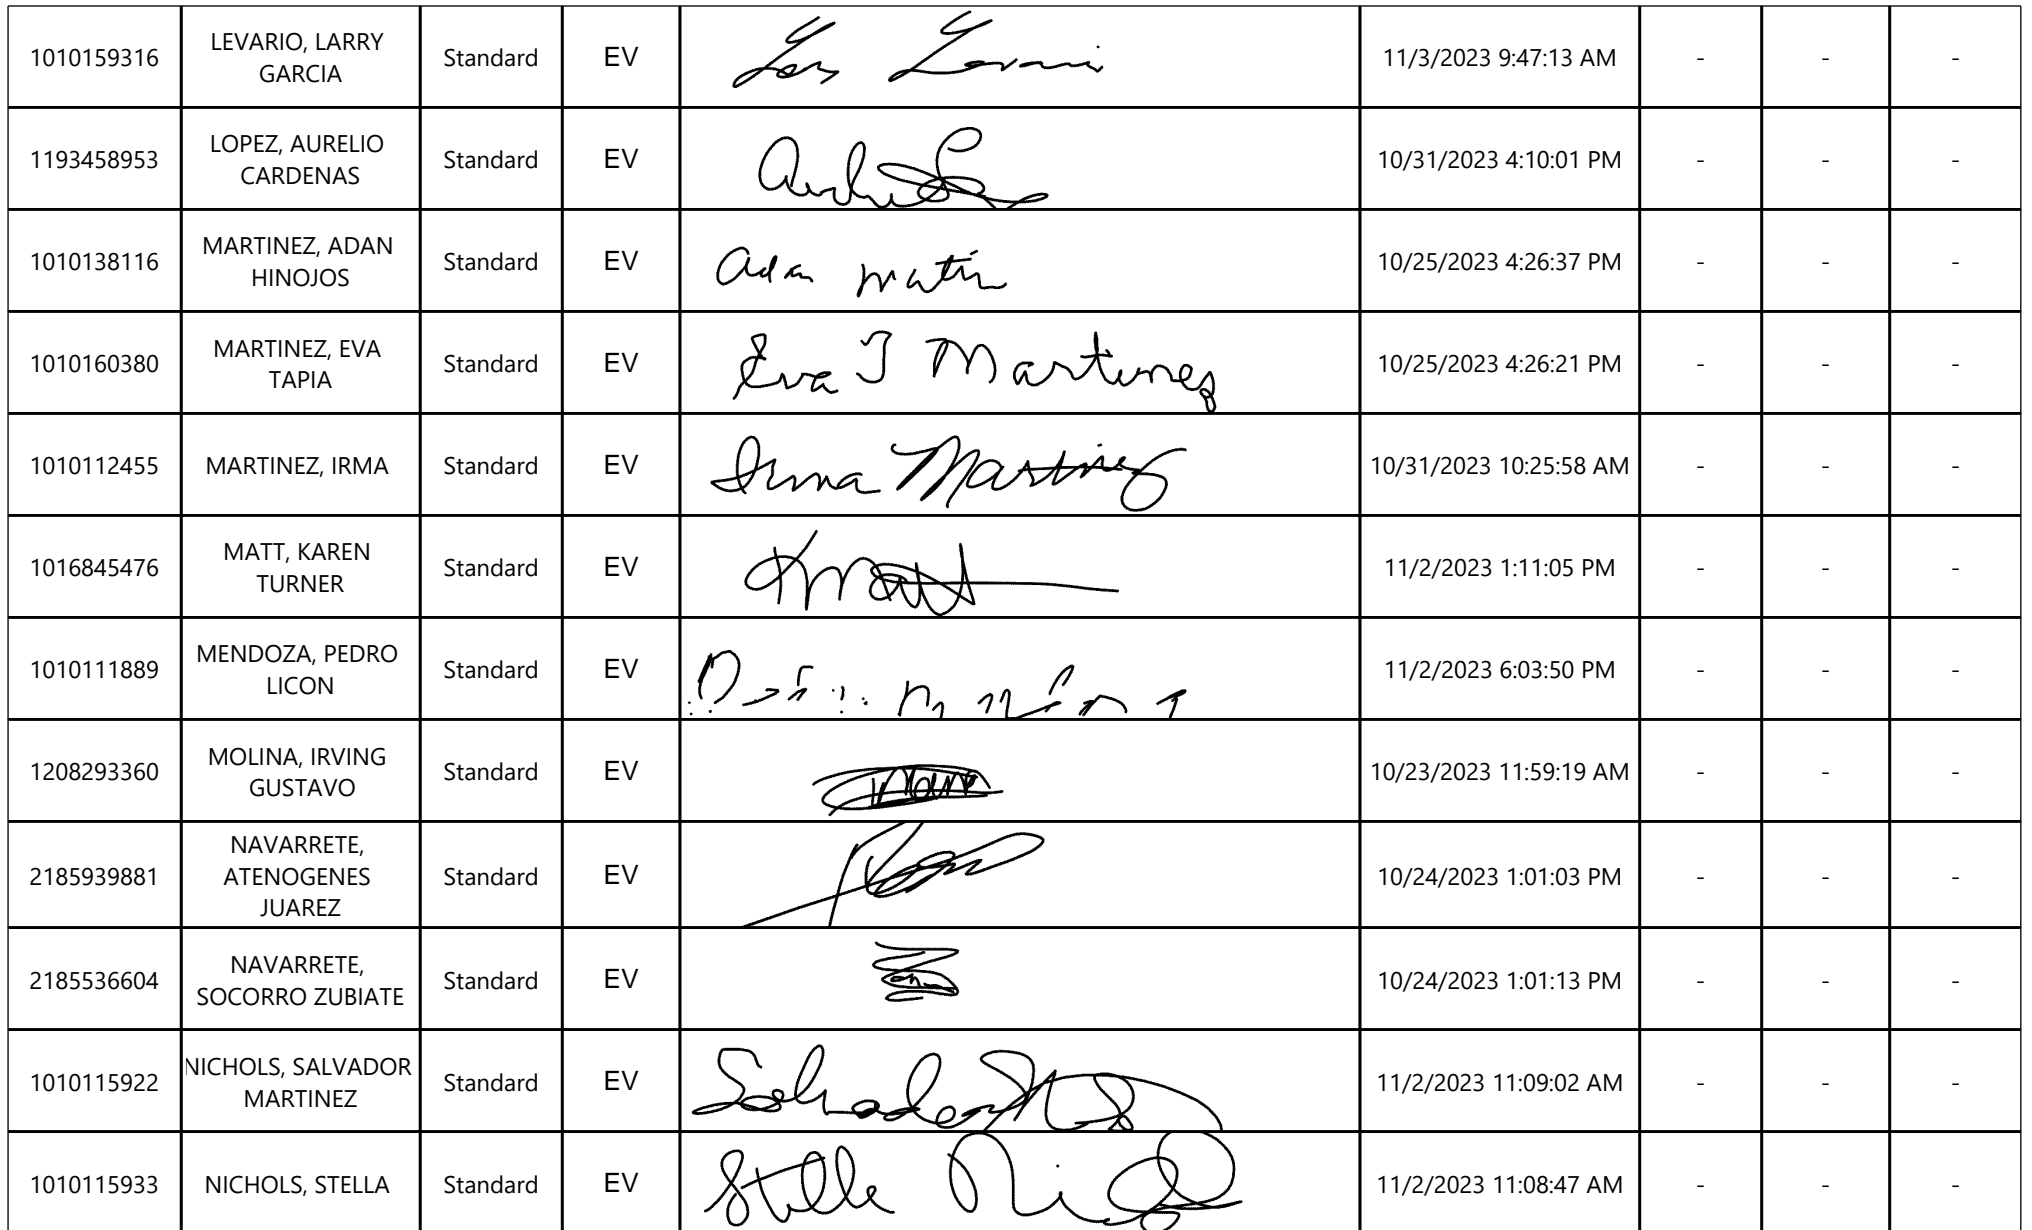 1010159316 LEVARIO, LARRY GARCIA Standard EV Larry Levario 11/3/2023 9:47:13 AM - - -
1193458953 LOPEZ, AURELIO CARDENAS Standard EV 10/31/2023 4:10:01 PM - - -
1010138116 MARTINEZ, ADAN HINOJOS Standard EV Adan 10/25/2023 4:26:37 PM - - -
1010160380 MARTINEZ, EVA TAPIA Standard EV Eva T Martinez 10/25/2023 4:26:21 PM - - -
1010112455 MARTINEZ, IRMA Standard EV Irma Martinez 10/31/2023 10:25:58 AM - - -
1016845476 MATT, KAREN TURNER Standard EV K Matt 11/2/2023 1:11:05 PM - - -
1010111889 MENDOZA, PEDRO LICON Standard EV 11/2/2023 6:03:50 PM - - -
1208293360 MOLINA, IRVING GUSTAVO Standard EV 10/23/2023 11:59:19 AM - - -
2185939881 NAVARRETE, ATENOGENES JUAREZ Standard EV 10/24/2023 1:01:03 PM - - -
2185536604 NAVARRETE, SOCORRO ZUBIATE Standard EV 10/24/2023 1:01:13 PM - - -
1010115922 NICHOLS, SALVADOR MARTINEZ Standard EV Salvador 11/2/2023 11:09:02 AM - - -
1010115933 NICHOLS, STELLA Standard EV Stella 11/2/2023 11:08:47 AM - - -